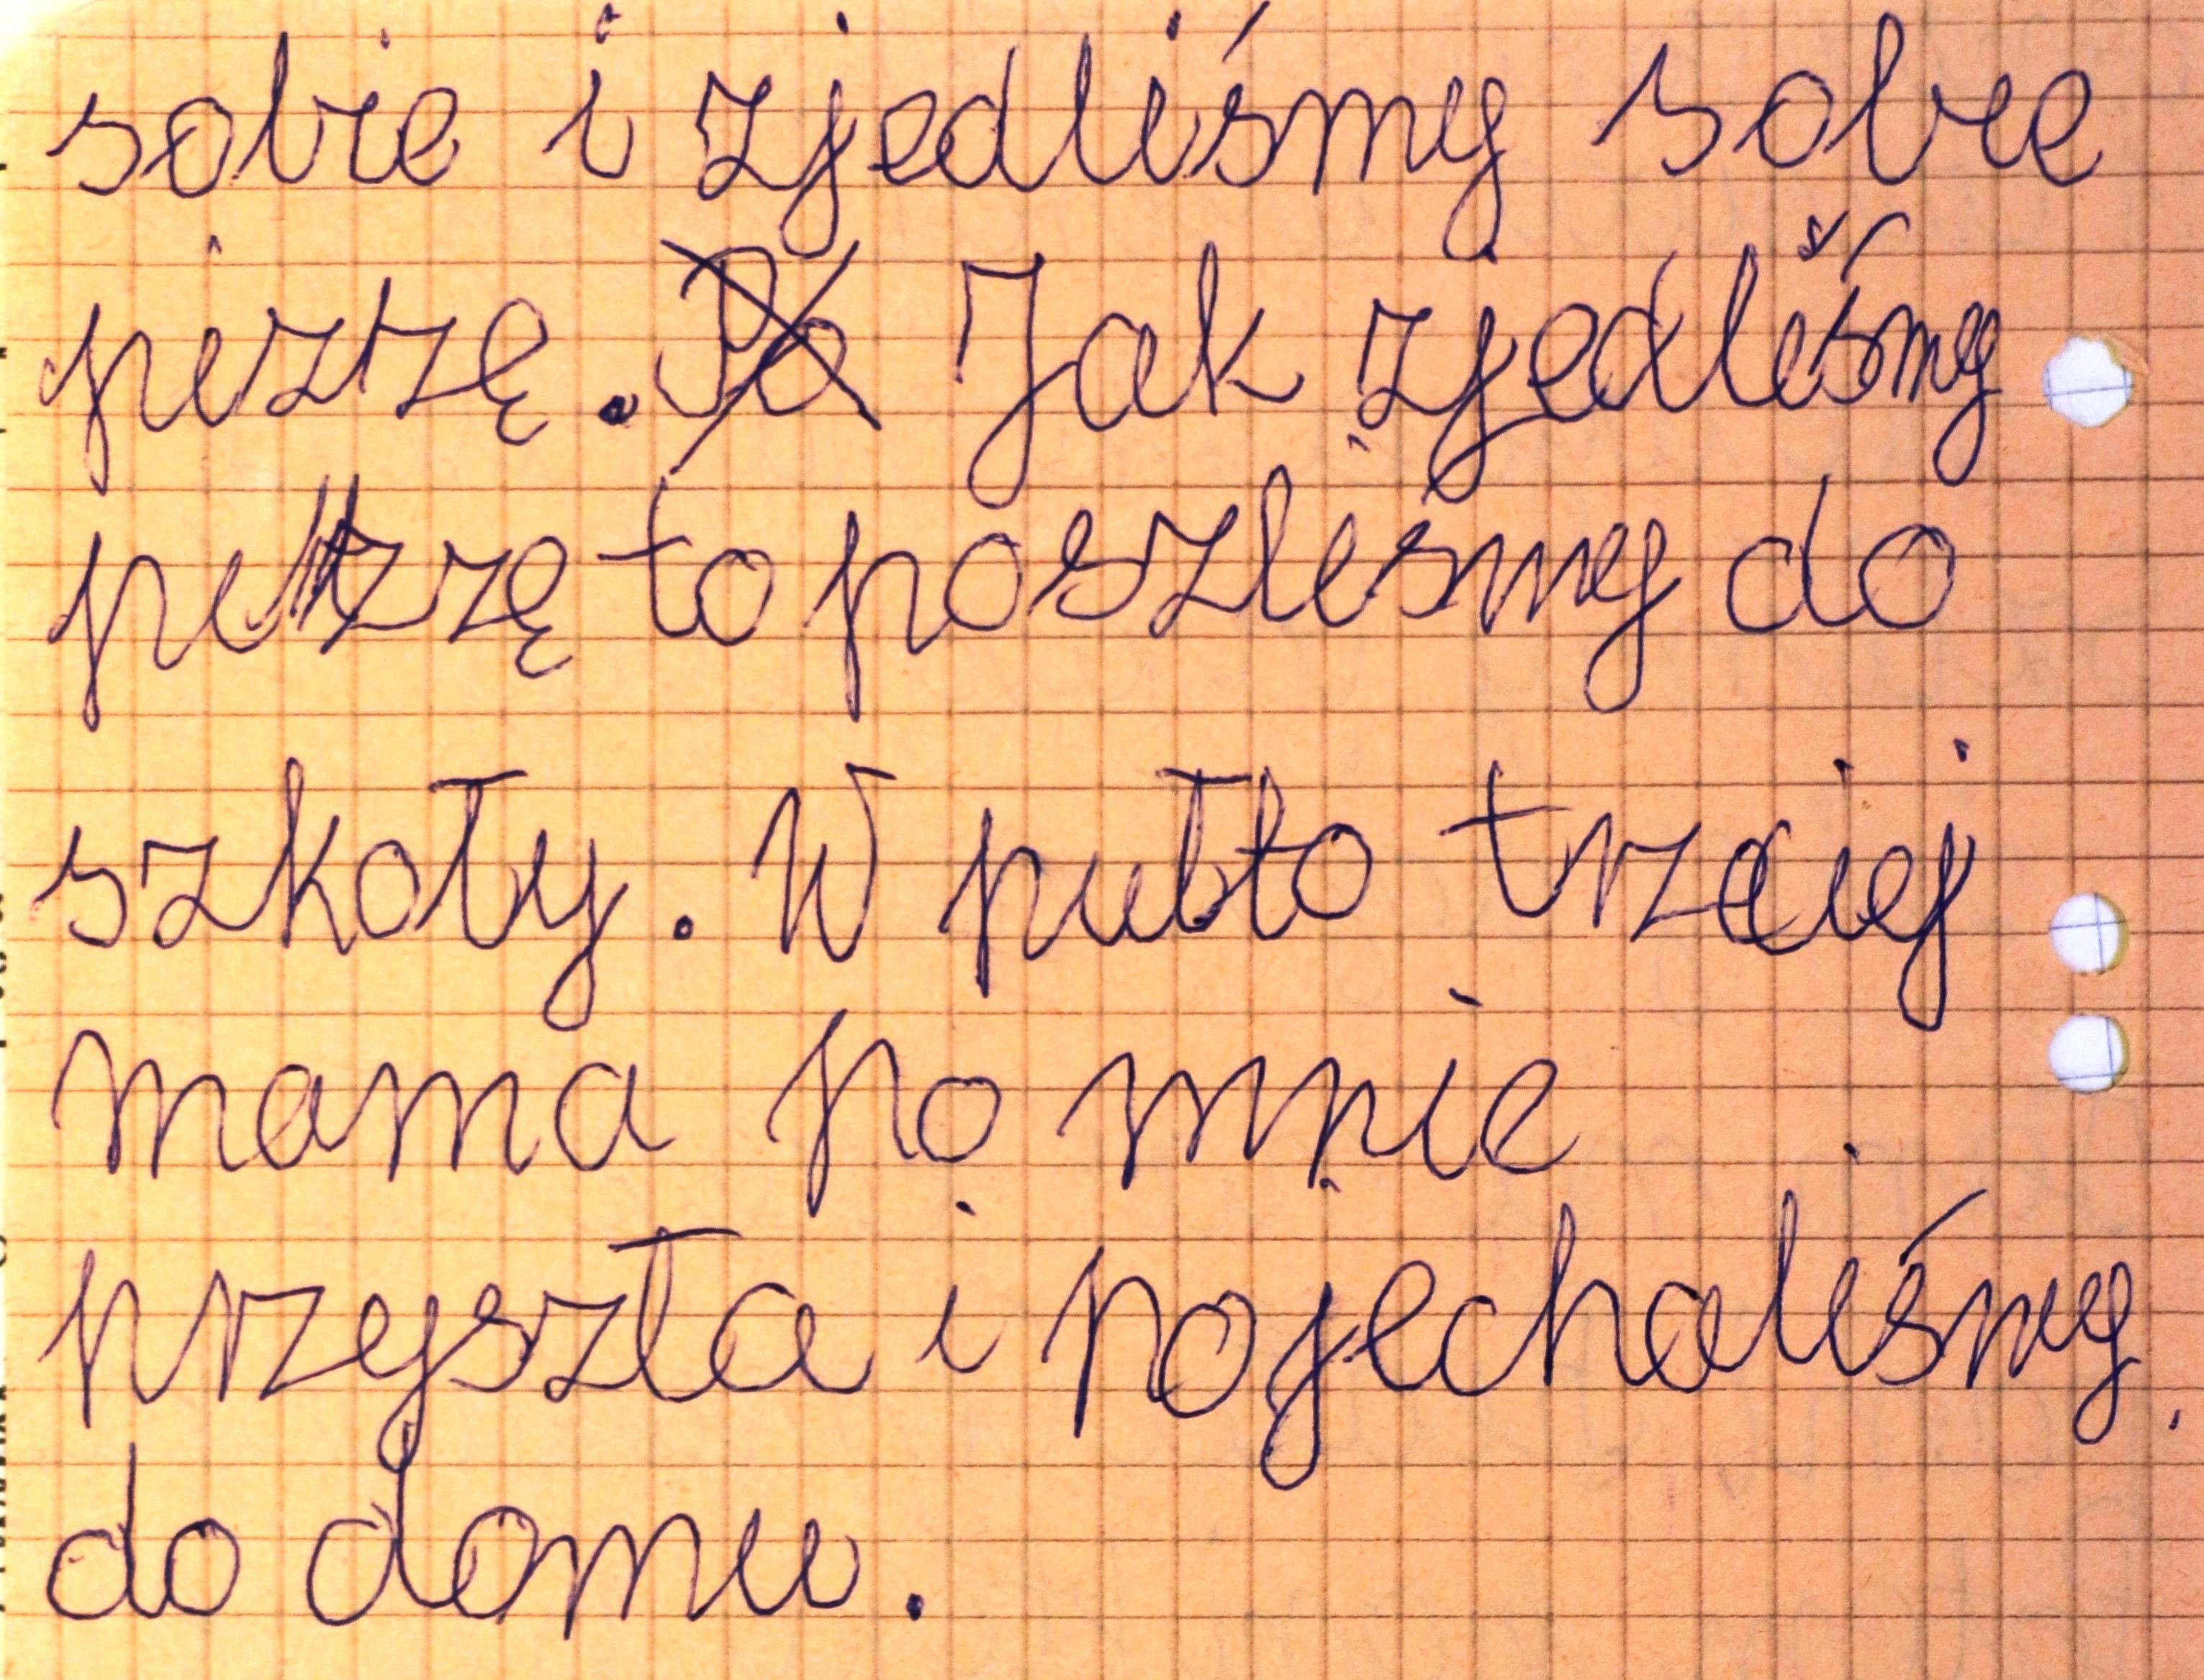 sobie i zjedliśmy sobie
pizzę. Po Jak zjedliśmy
pizzę to poszliśmy do
szkoły. W putto trzeciej
mama po mnie
przyszła i pojechaliśmy.
do domu.